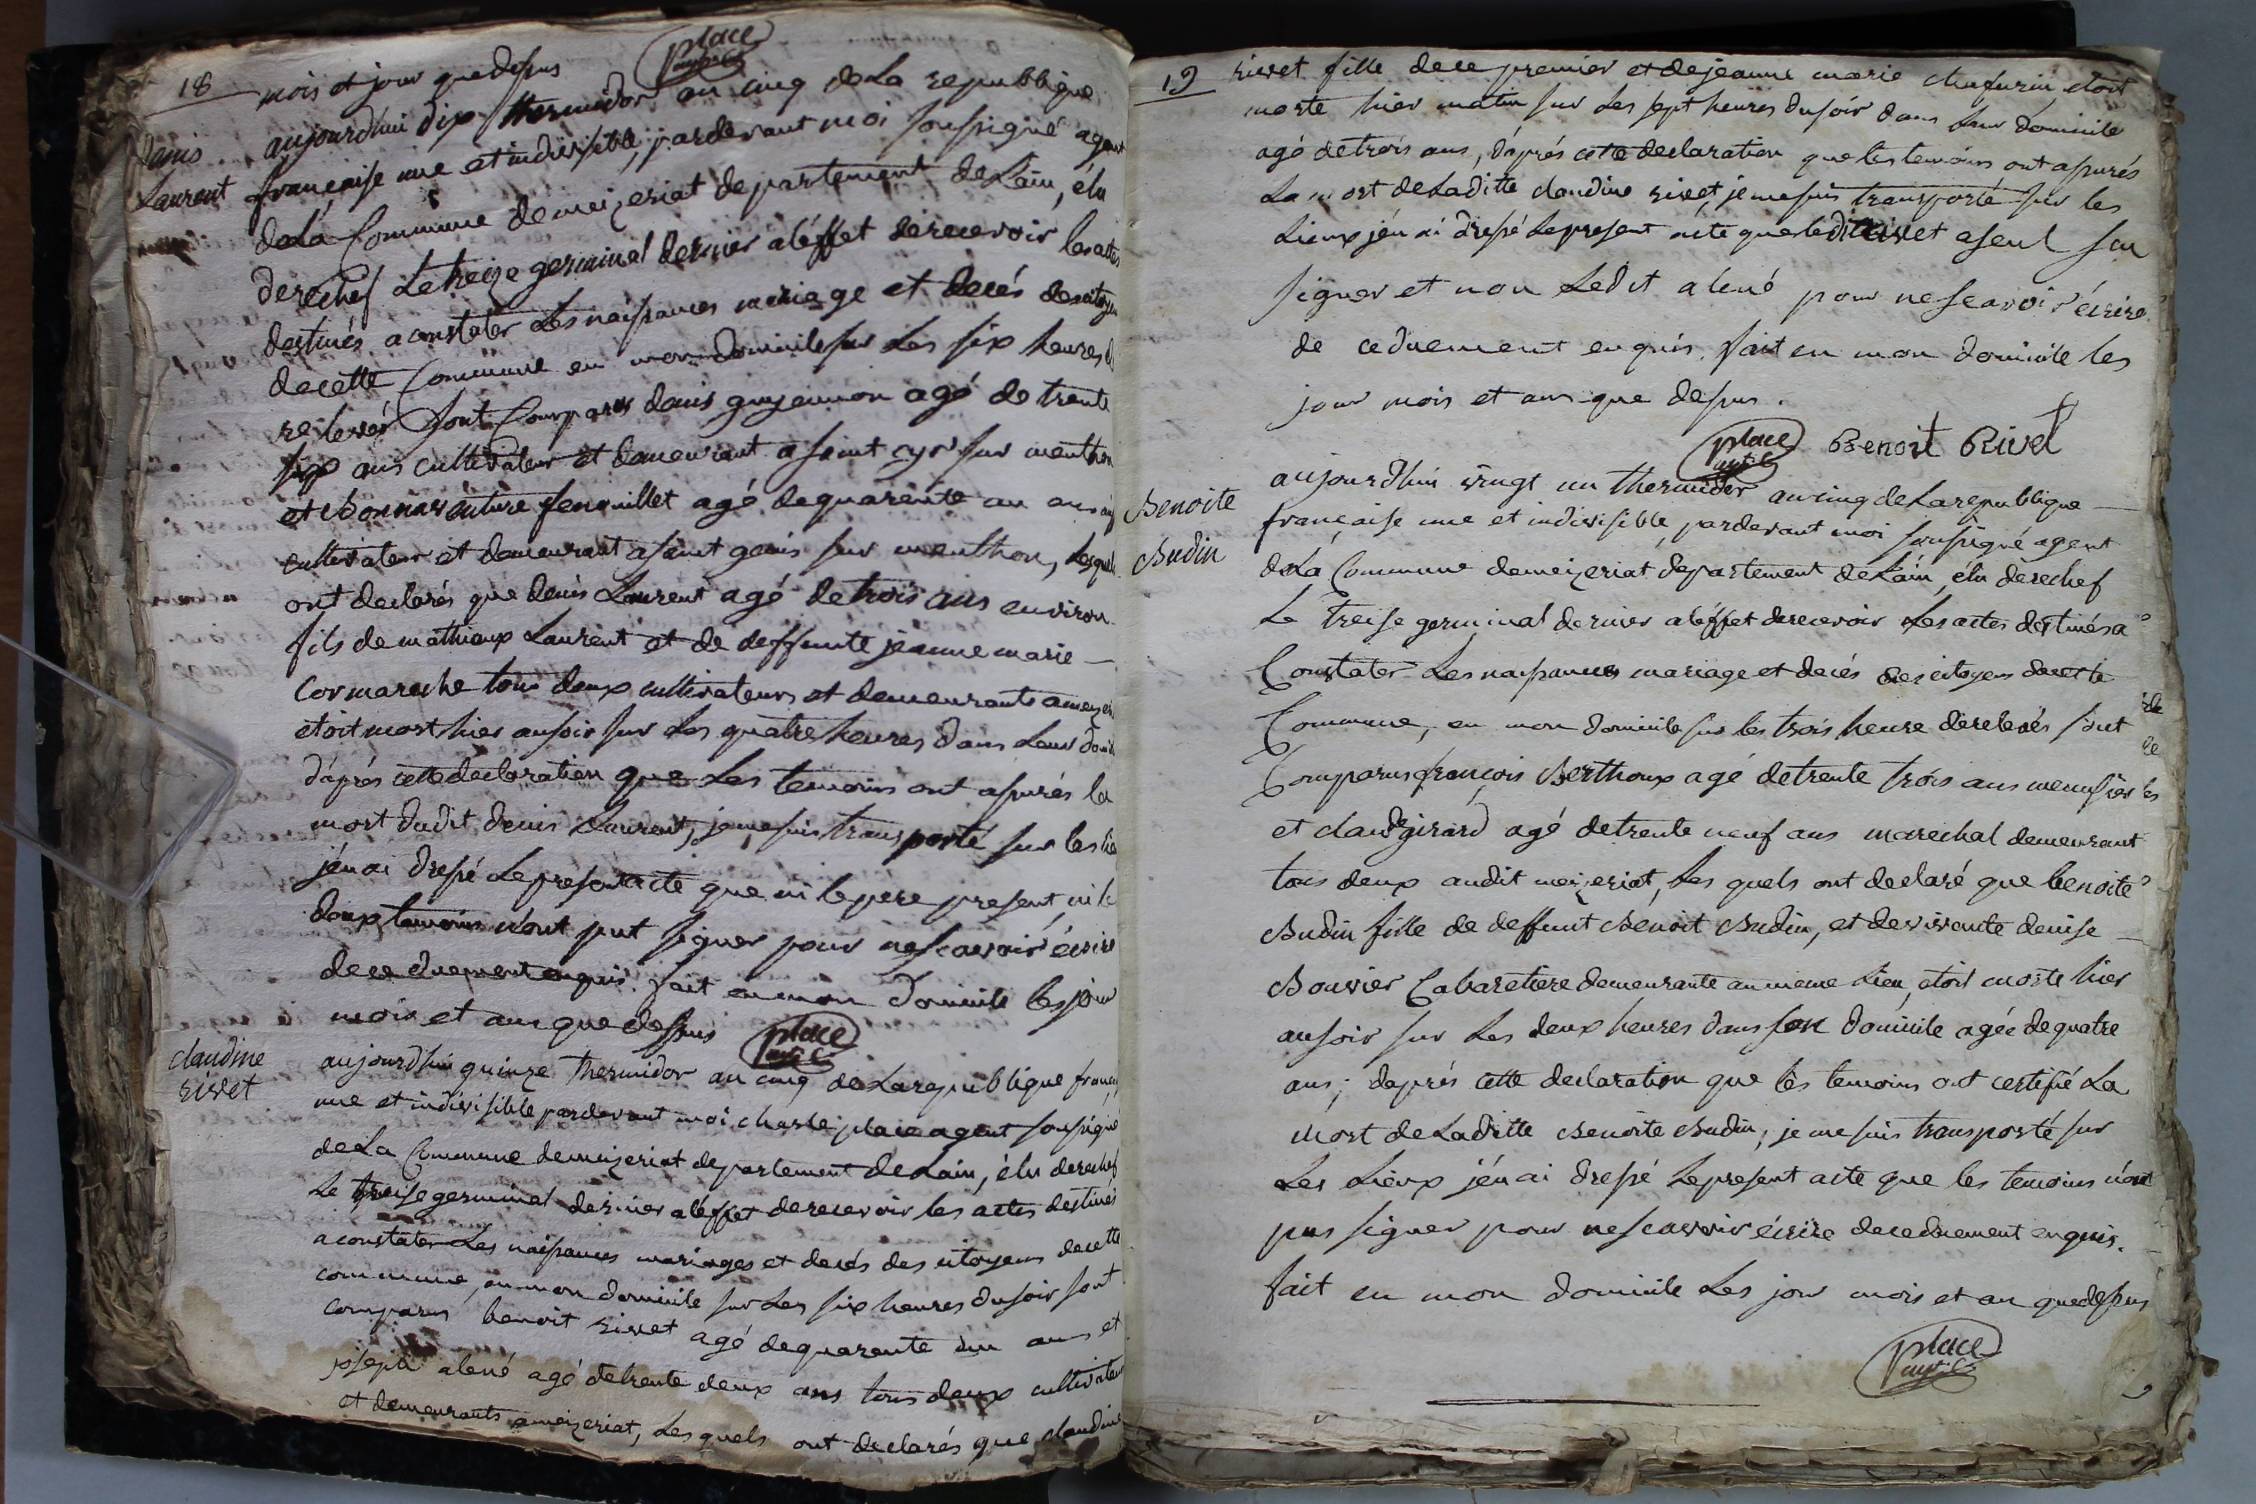 18
mois et jour que dessus
place
agent
Denis
Laurent
aujourdhui dix thermidor an cinq de La republique
française une et indivisible, pardevant moi soussigné agent
de La Commune de meizeriat departement de Lain, élu
derechef Le treize germinal dernier a léffet de recevoir les actes
destinés a constater Les naissances mariage et decés des citoyens
de cette Commune en mon domicile sur Les six heures d
relevés sont Comparus denis guyennon agé de trente
six ans cultivateur et demeurant a saint cyr sur menthon
et Bonnaventure fenouillet agé de quarente un ans
cultivateur et demeurant a saint genis sur menthon, Lesquels
ont declarés que denis Laurent agé de trois ans environ
fils de mathieux Laurent et de deffunte jeanne marie
Cormareche tous deux cultivateurs et demeurants a mezeri
etoit mort hier au soir sur Les quatre heures dans Leur domi
d'aprés cette declaration que Les temoins ont assurés la
mort dudit denis Laurent, je me suis transporté sur les lie
j'én ai dressé Le present acte que ni le pere present, ni le
deux temoins n'ont put signer pour ne scavoir écrire
de ce duement enquis. fait en mon domicile les jour
mois et an que dessus
place
agent
claudine
rivet
aujourdhui quinze thermidor an cinq de La republique françai
une et indivisible pardevant moi charle place agent soussigné
de La Commune de meizeriat departement de Lain, élu derechef
Le treise germinal dernier a léffet de recevoir les actes destinés
a constater Les naissances mariages et decés des citoyens de cette
commune, en mon domicile sur Les six heures du soir sont
comparus benoit rivet agé de quarente un ans et
joseph alené agé de trente deux ans tous deux cultivateur
et demeurants a meizeriat, Les quels ont declarés que claudine
19
rivet fille de ce premier et de jeanne marie chafurin etoit
morte hier matin sur Les sept heures du soir dans Leur domicile
agé de trois ans, d'aprés cette declaration que les temoins ont assurés
La mort de Laditte claudine rivet, je me suis transporté sur les
Lieux j'én ai dressé Le present acte que ledit rivet a seul sçu
signer et non Ledit alené pour ne scavoir écrire
de ce duement enquis. fait en mon domicile les
jour mois et an que dessus.
place
agent
Benoit Rivet
Benoite
Budin
aujourdhui vingt un thermidor an cinq de La republique
française une et indivisible, pardevant moi soussigné agent
de La Commune de meizeriat departement de Lain, élu derechef
Le treise germinal dernier a léffet de recevoir Les actes destinés a
Constater Les naissances mariage et decés des citoyens de cette
Commune, en mon domicile sur les trois heure de relevés sont
Comparus françois Berthoux agé de trente trois ans menusier
et claude girard agé de trente neuf ans marechal demeurant
tous deux audit meizeriat, Les quels ont declaré que benoite
Budin fille de deffunt Benoit Budin, et de vivante denise
Bouvier Cabaretiere demeurante au meme Lieu, etoit morte hier
au soir sur Les deux heures dans son domicile agée de quatre
ans; d'aprés cette declaration que les temoins ont certifié La
mort de Laditte Benoite Budin, je me suis transporté sur
Les Lieux j'én ai dressé Le present acte que les temoins n'ont
pus signer pour ne scavoir écrire de ce duement enquis.
fait en mon domicile Les jour mois et an que dessus
place
agent